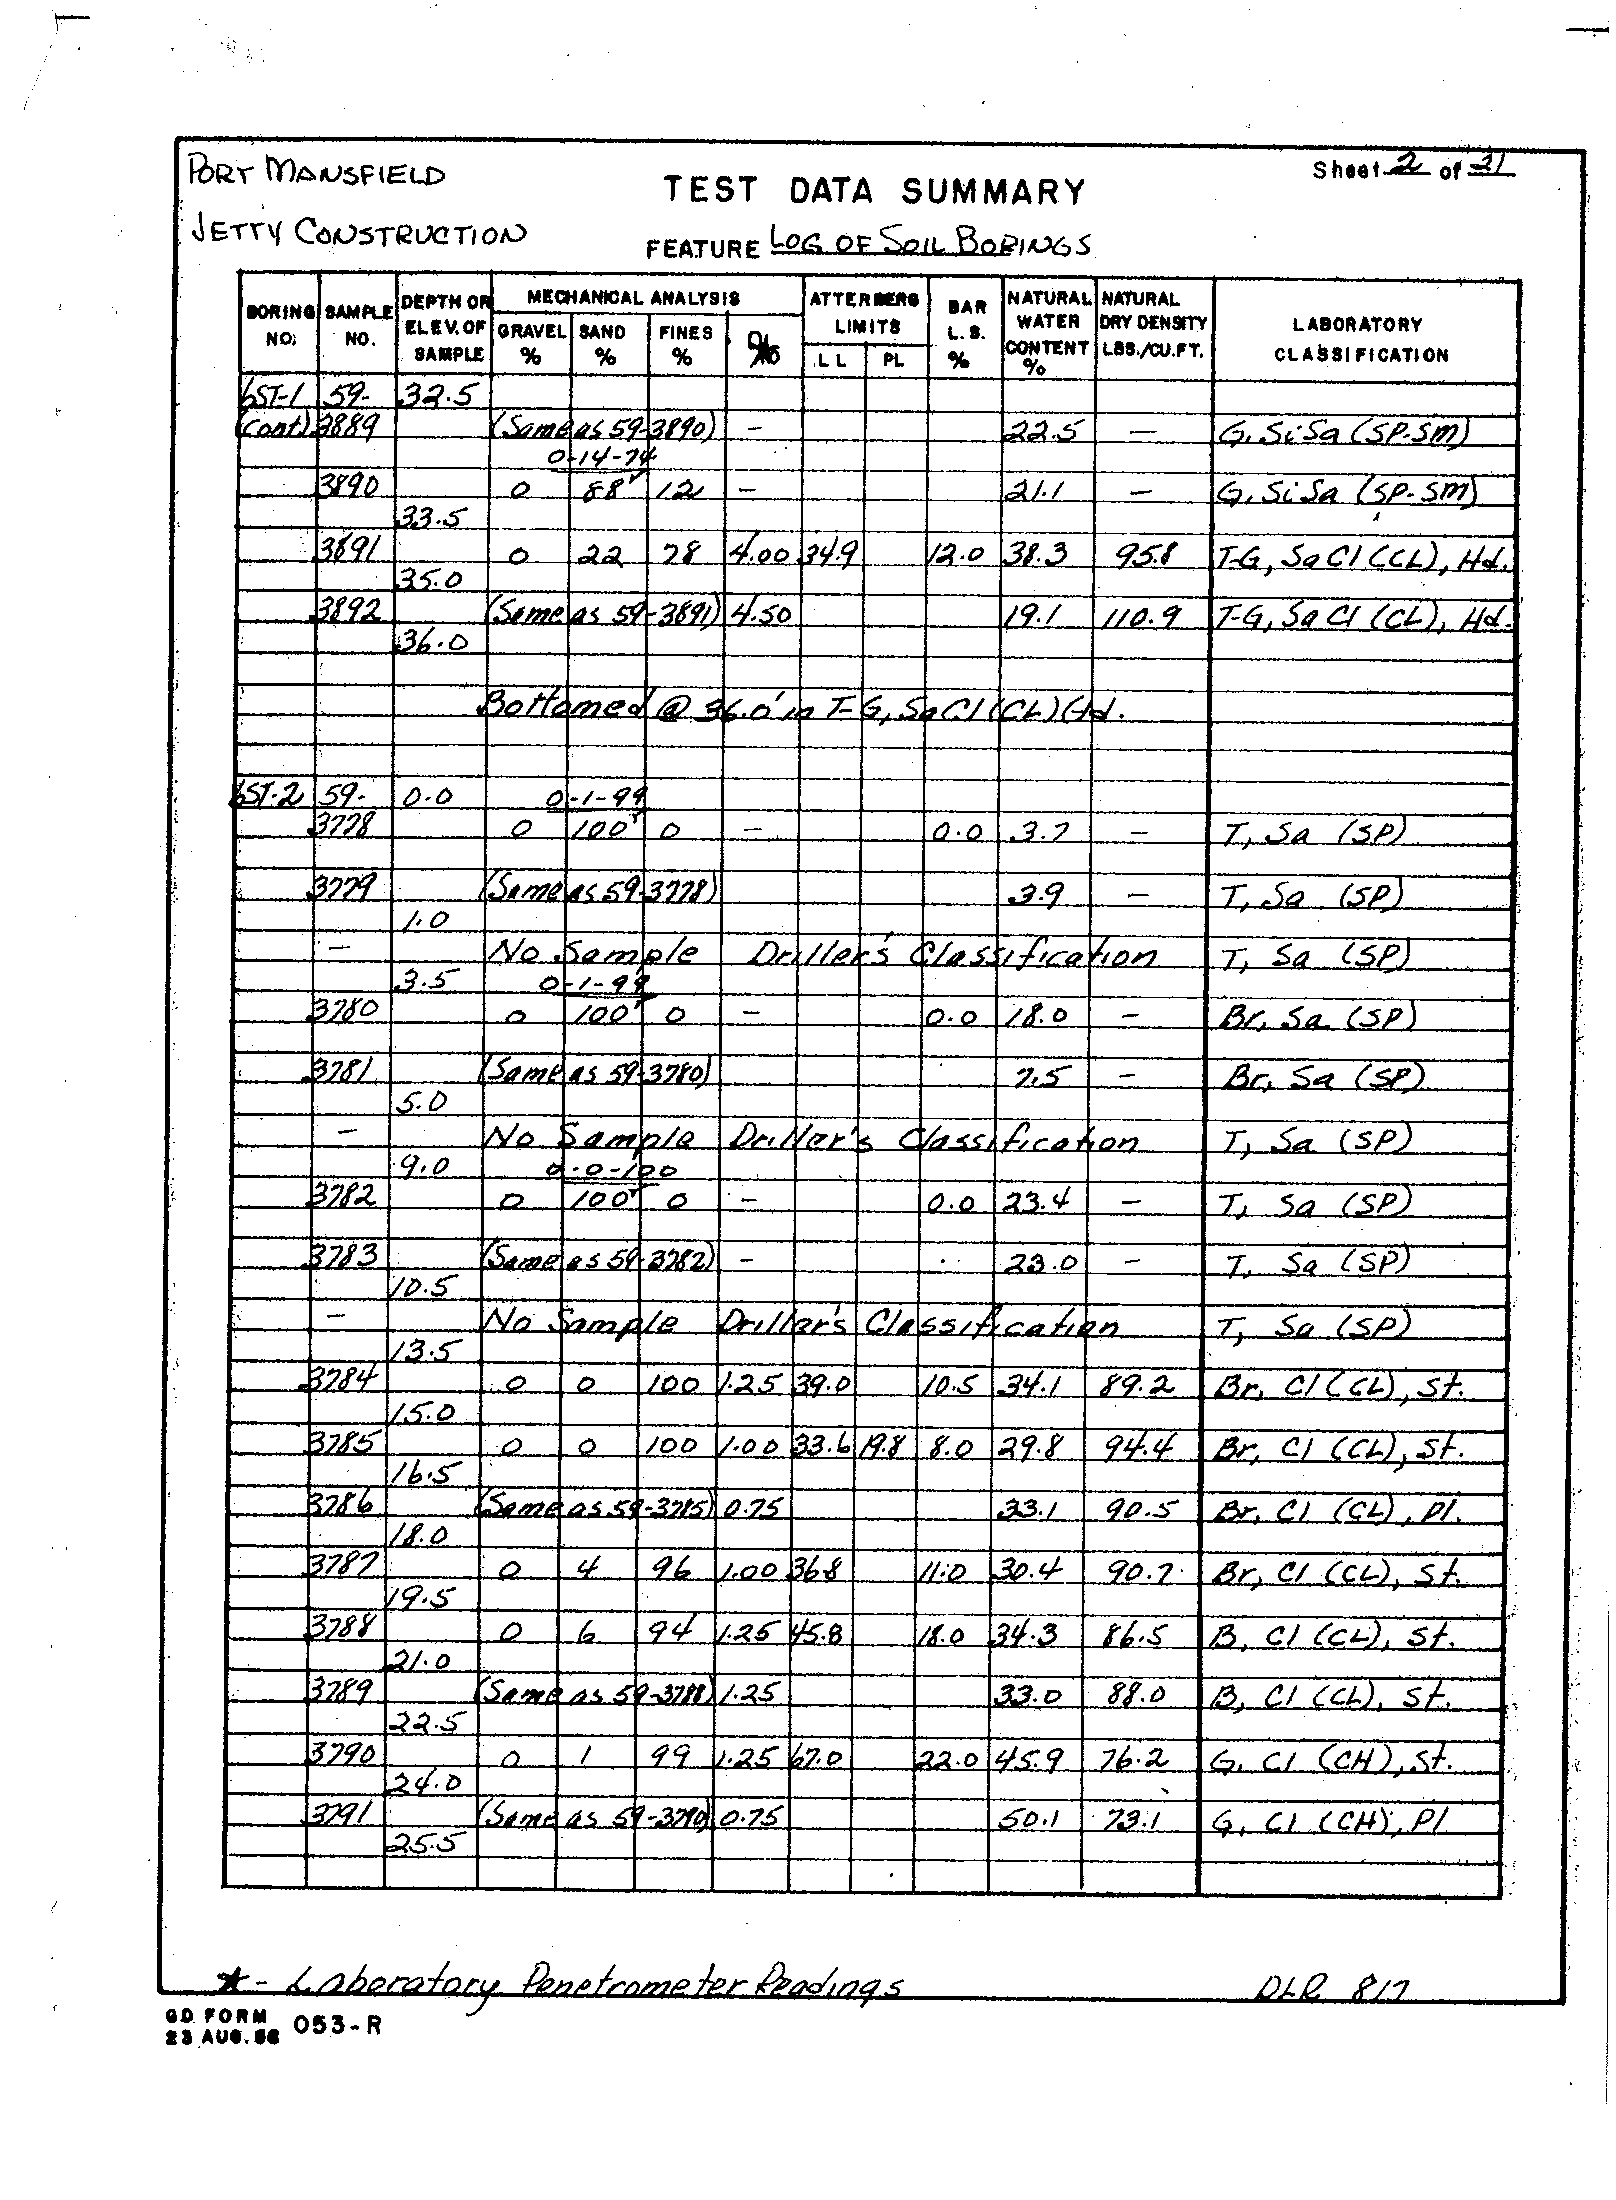 PORT MANSFIELD
Sheet 2 of 31
TEST DATA SUMMARY
JETTY CONSTRUCTION
FEATURE LOG OF SOIL BORINGS
BORING NO. SAMPLE NO. DEPTH OR ELEV. OF SAMPLE MECHANICAL ANALYSIS GRAVEL % SAND % FINES % ATTERBERG LIMITS LL PL BAR L.S. % NATURAL WATER CONTENT % NATURAL DRY DENSITY LBS./CU.FT. LABORATORY CLASSIFICATION
6ST-1 59- 32.5
(Cont) 3889 (Same as 59-3890) - 22.5 - G, SiSa (SP-SM)
0-14-74
3890 0 88 12 - 21.1 - G, SiSa (SP-SM)
33.5
3891 0 22 78 4.00 34.9 12.0 38.3 95.8 T-G, SaCl (CL), Hd.
35.0
3892 (Same as 59-3891) 4.50 19.1 110.9 T-G, SaCl (CL), Hd.
36.0
Bottomed @ 36.0' in T-G, SaCl (CL) Hd.
6ST-2 59- 0.0 0-1-99
3778 0 100 0 - 0.0 3.7 - T, Sa (SP)
3779 (Same as 59-3778) 3.9 - T, Sa (SP)
1.0
- No Sample Driller's Classification T, Sa (SP)
3.5 0-1-99
3780 0 100 0 - 0.0 18.0 - Br, Sa (SP)
3781 (Same as 59-3780) 7.5 - Br, Sa (SP)
5.0
- No Sample Driller's Classification T, Sa (SP)
9.0 0-0-100
3782 0 100 0 - 0.0 23.4 - T, Sa (SP)
3783 (Same as 59-3782) - 23.0 - T, Sa (SP)
10.5
- No Sample Driller's Classification T, Sa (SP)
13.5
3784 0 0 100 1.25 39.0 10.5 34.1 89.2 Br, Cl (CL), St.
15.0
3785 0 0 100 1.00 33.6 19.8 8.0 29.8 94.4 Br, Cl (CL), St.
16.5
3786 (Same as 59-3785) 0.75 33.1 90.5 Br, Cl (CL), Pl.
18.0
3787 0 4 96 1.00 36.8 11.0 30.4 90.7 Br, Cl (CL), St.
19.5
3788 0 6 94 1.25 45.8 18.0 34.3 86.5 B, Cl (CL), St.
21.0
3789 (Same as 59-3788) 1.25 33.0 88.0 B, Cl (CL), St.
22.5
3790 0 1 99 1.25 67.0 22.0 45.9 76.2 G, Cl (CH), St.
24.0
3791 (Same as 59-3790) 0.75 50.1 73.1 G, Cl (CH), Pl
25.5
* - Laboratory Penetrometer Readings
DLR 817
GD FORM 053-R
23 AUG. 56